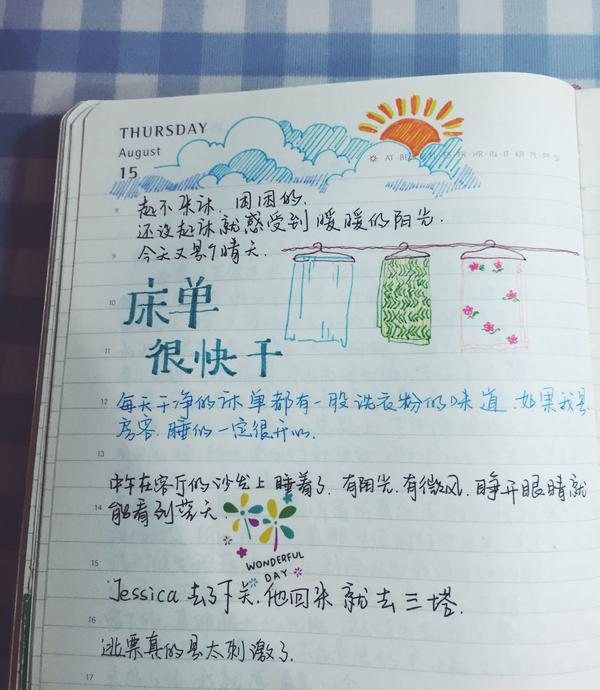 THURSDAY
August
15
AT·BE
·FR·HR·IN·IT·KR·PL·PT
8
起不来床,困困的.
还没起床就感受到暖暖的阳光.
9
今天又是个晴天.
10
床单
11
很快干
12
每天干净的床单都有一股洗衣粉的味道.如果我是
房客.睡的一定很开心.
13
中午在客厅的沙发上睡着了.有阳光.有微风.睁开眼睛就
14
能看到蓝天.
WONDERFUL
DAY
15
Jessica去了下关.他回来就去三塔.
16
逃票真的是太刺激了.
17